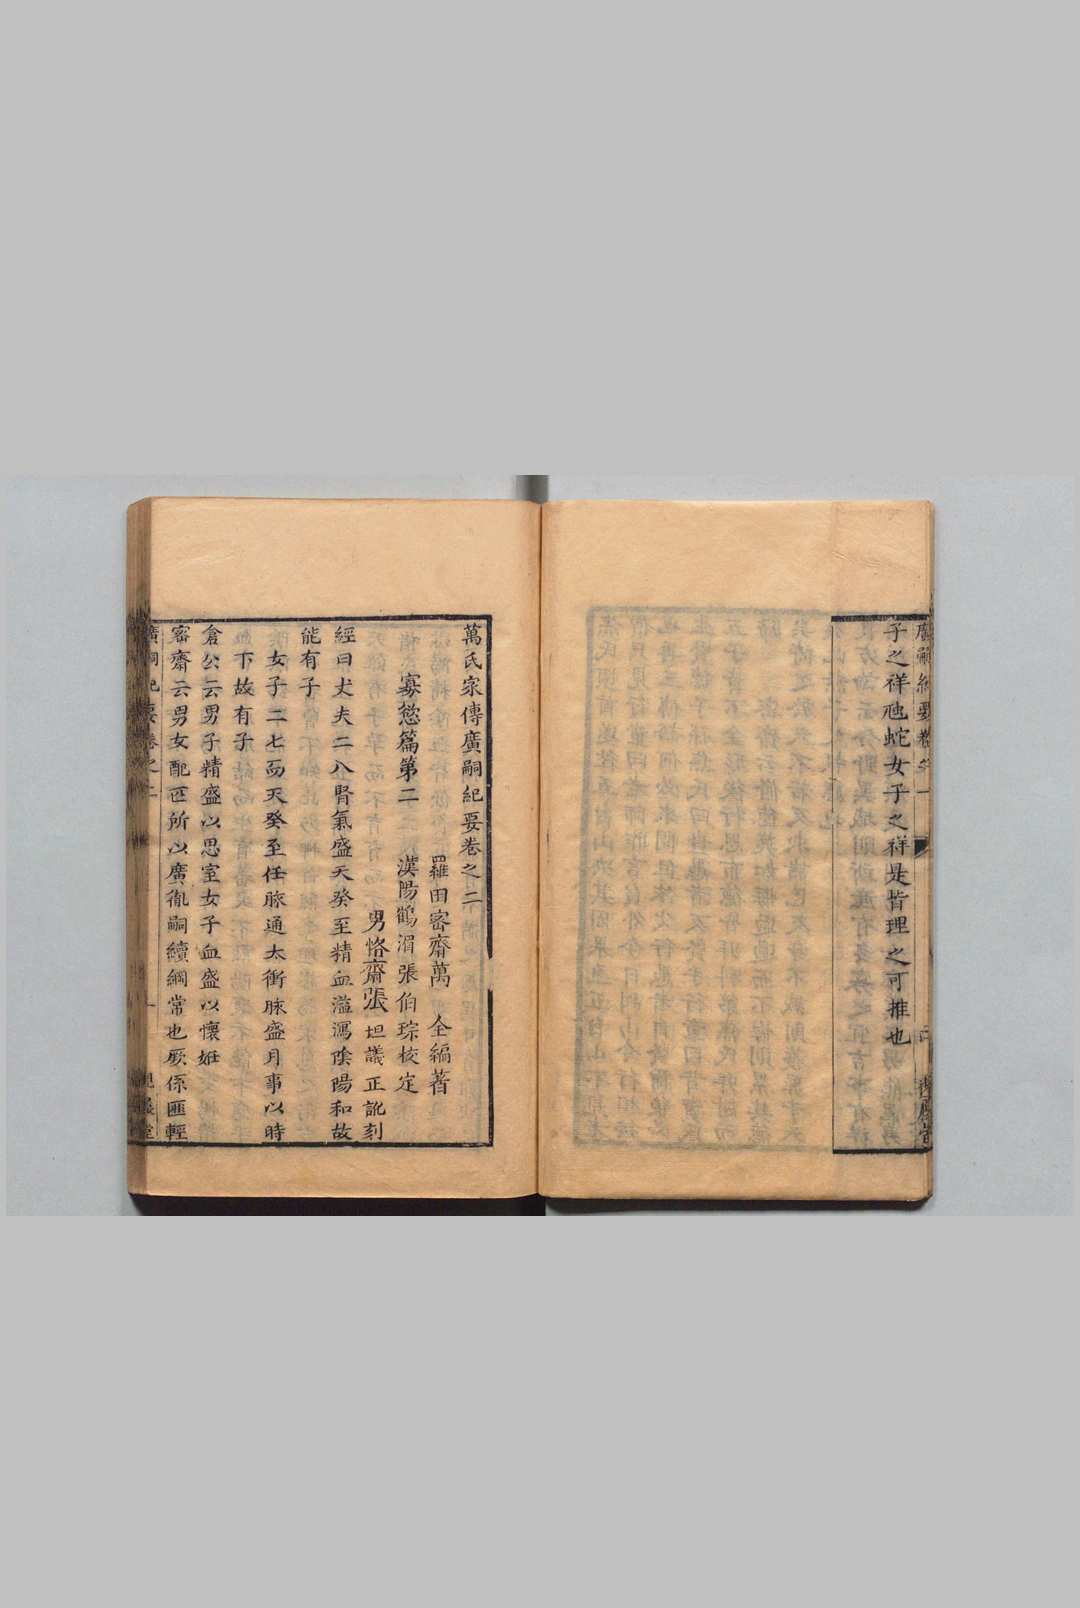 子之祥虺蛇女子之祥是皆理之可推也
萬氏家傳廣嗣紀要卷之二
羅田密齋萬 全編著
寡慾篇第二
漢陽鶴湄張伯琮校定
男恪齋張坦議正訛刻
經曰丈夫二八腎氣盛天癸至精血溢瀉陰陽和故
能有子
女子二七而天癸至任脉通太衝脉盛月事以時
下故有子
倉公云男子精盛以思室女子血盛以懷姙
密齋云男女配匹所以廣胤嗣續綱常也厥係匪輕
廣嗣紀要卷之二